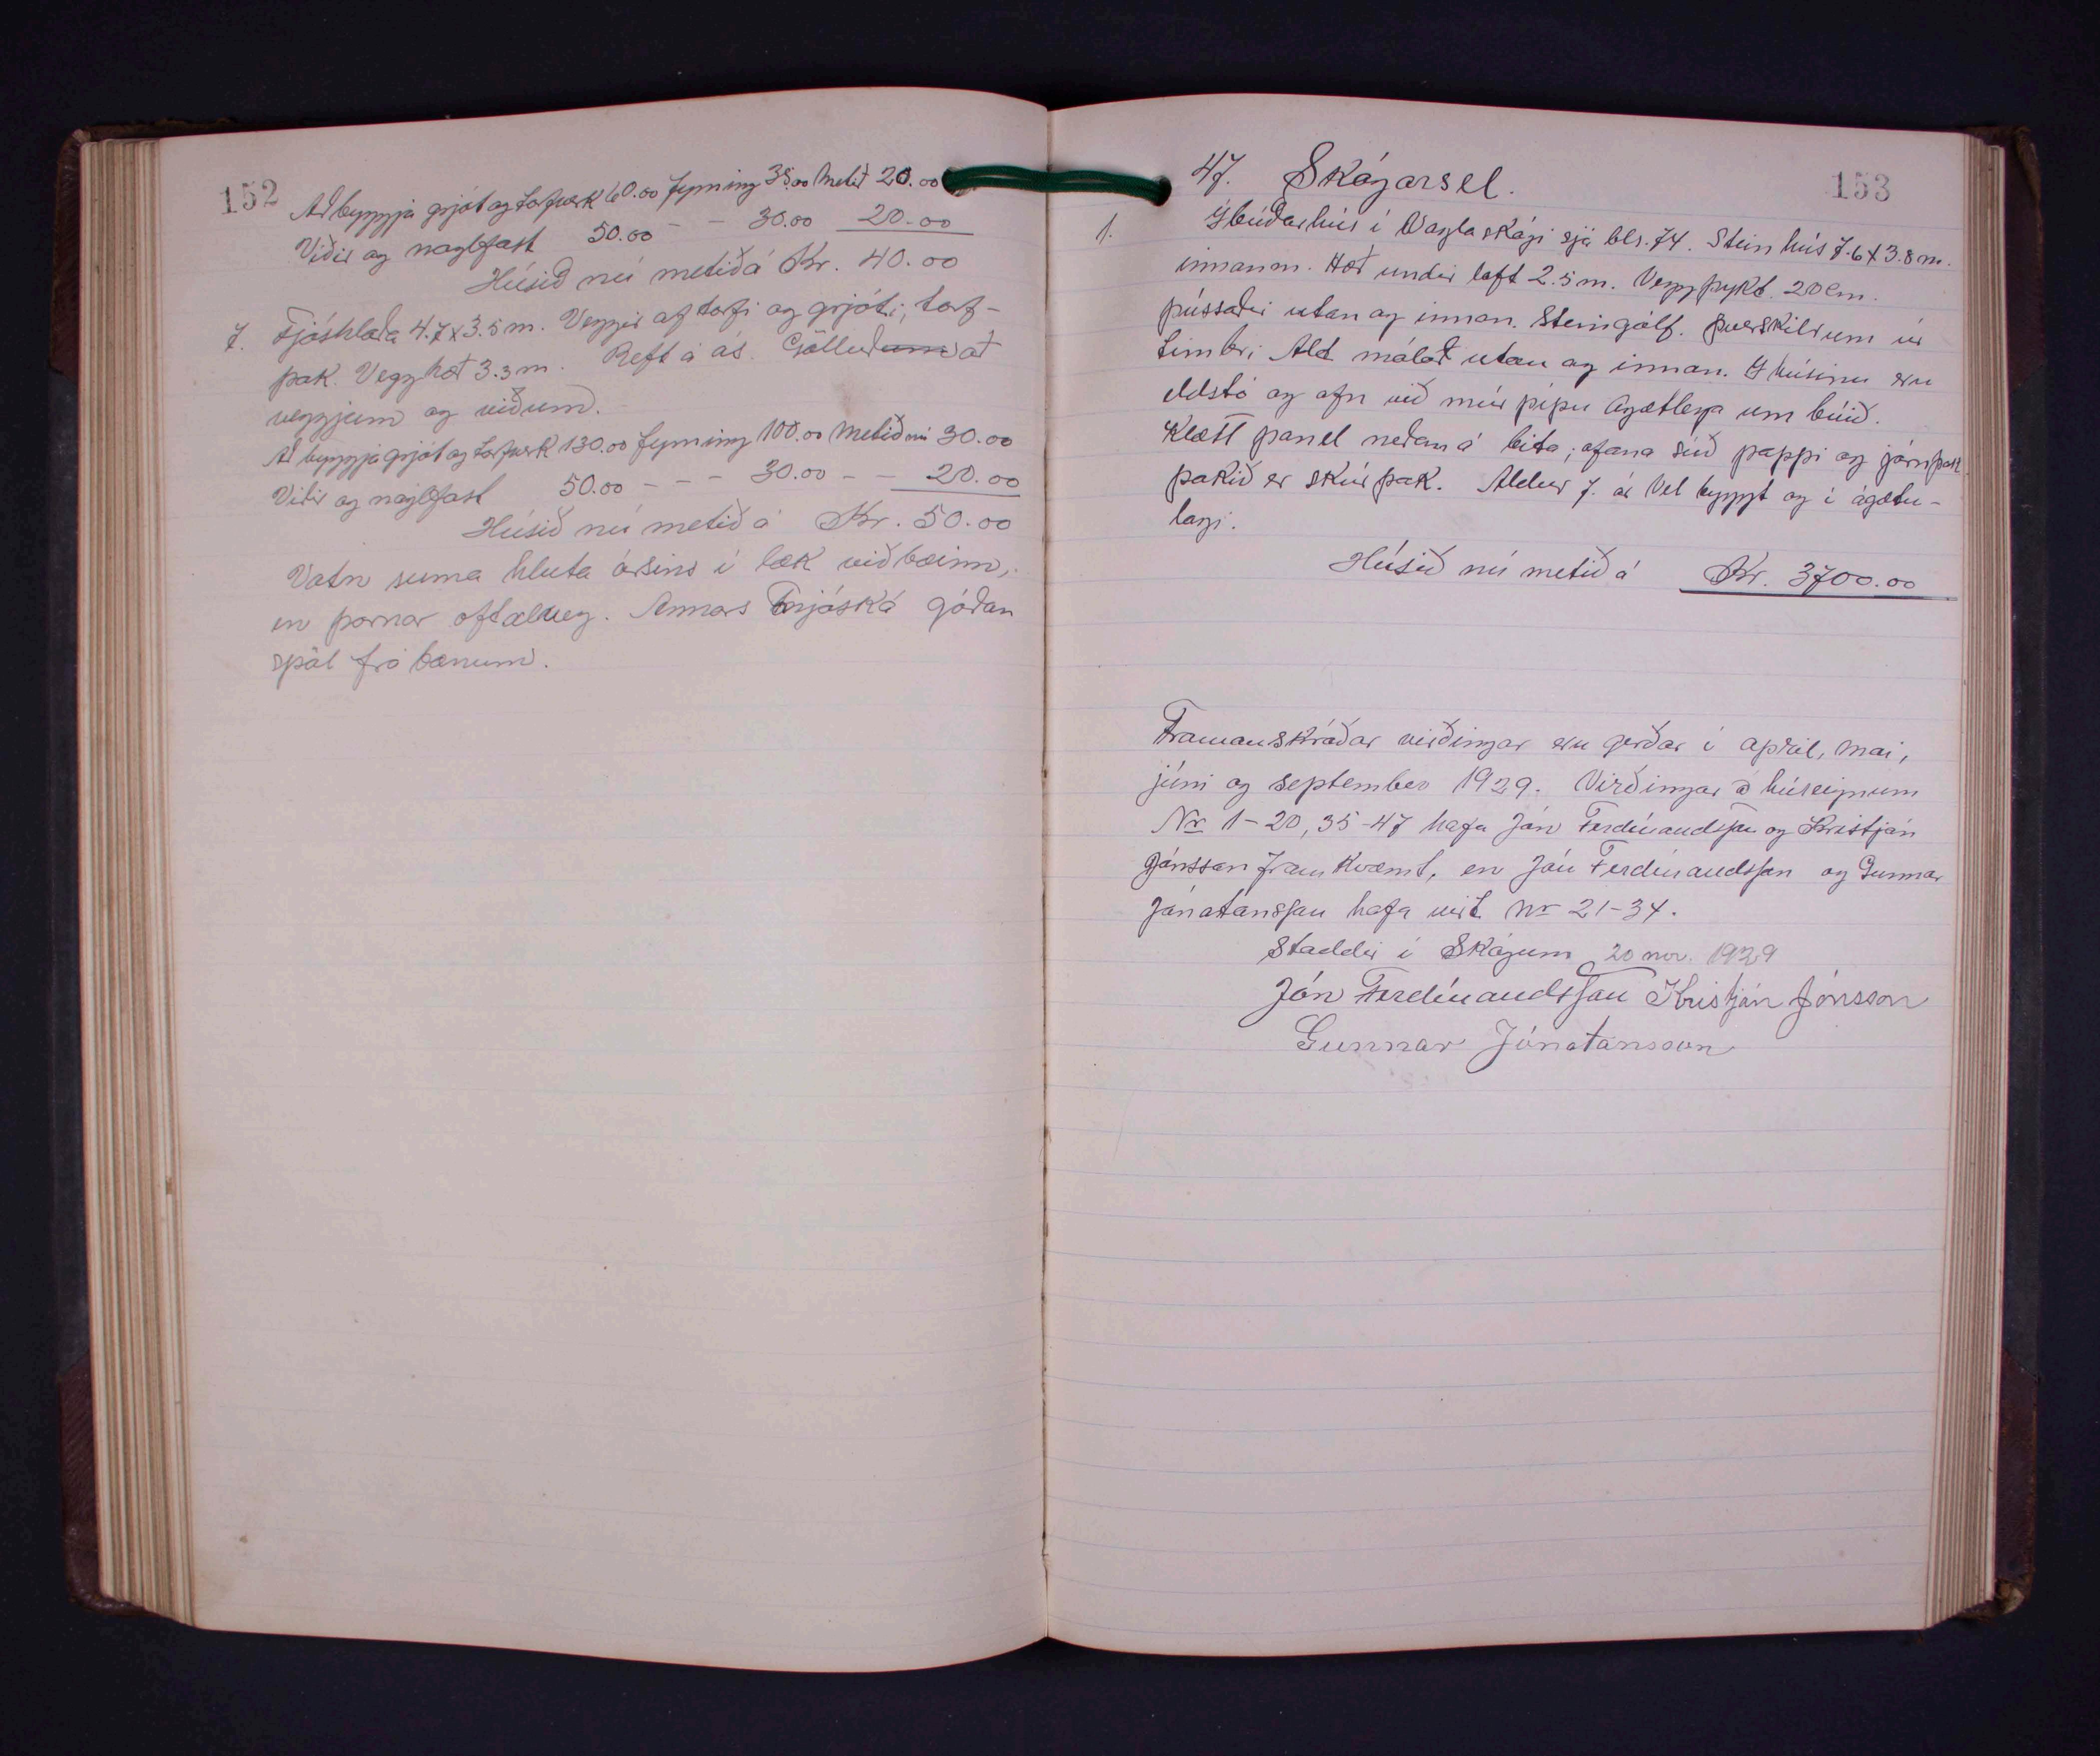 152
Að byggja grjót og torfverk 60.00 fyrning 35.00 Metið 20.00
Viðir og naglfast 50.00 - - 30.00 20.00
Húsið nú metið á Kr. 40.00
7. Fjóshlaða 4.7x3.5 m. Veggir af torfi og grjóti, torf-
þak. Vegghæð 3.3 m. Reft á ás. Gölluð að
veggjum og viðum.
Að byggja grjót og torfverk 130.00 fyrning 100.00 Metið nú 30.00
Viðir og naglfast 50.00 - - - 30.00 - - 20.00
Húsið nú metið á Kr. 50.00
Vatn suma hluta ársins í læk við bæinn,
en þornar oft alveg. Annars Fnjóská góðan
spöl frá bænum.
153
47. Skógarsel.
1. Íbúðarhús í Vaglaskógi sjá bls. 74. Steinhús 7.6x3.8 m.
innanm. Hæð undir loft 2.5 m. Veggþykt. 20 cm.
pússaðir utan og innan. Steingólf. Þverskilrum úr
timbri Alt málað utan og innan. Í húsinu eru
eldstó og ofn við múrpípu Ágætlega um búið.
Klætt panel neðan á bita; ofana súð pappi og járnþak
þakið er skúrþak. Aldur 7. ár Vel byggt og í ágætu-
lagi.
Húsið nú metið á Kr. 3700.00
Framanskráðar virðingar eru gerðar í april, mai,
júni og september 1929. Virðingar á húseignum
Nr 1-20, 35-47 hafa Jón Ferdínandsson og Kristján
Jónsson framkvæmt, en Jón Ferdínandsson og Gunnar
Jónatansson hafa virt Nr 21-34.
Staddir í Skógum 20 nov. 1929
Jón Ferdínandsson Kristján Jónsson
Gunnar Jónatansson